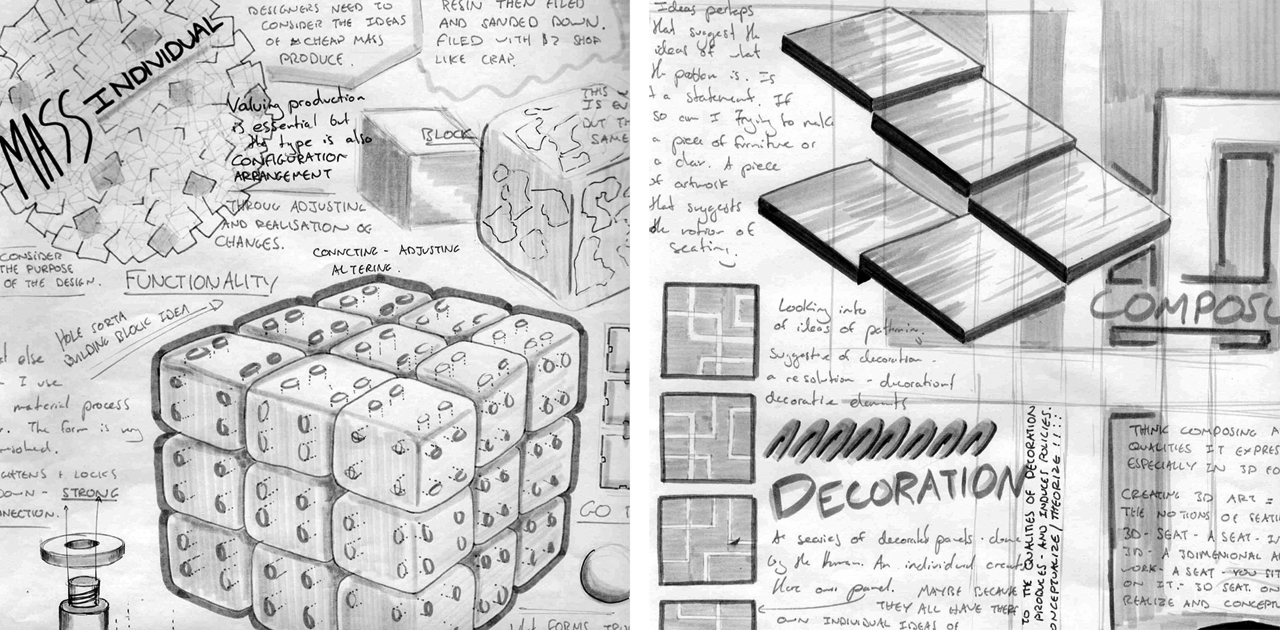 MASS INDIVIDUAL
DESIGNERS NEED TO
CONSIDER THE IDEAS
OF CHEAP MASS
PRODUCE.
RESIN THEN FILED
AND SANDED DOWN.
FILED WITH SHOP
LIKE CRAP.
Valuing production
is essential but
the type is also
CONFIGURATION
ARRANGEMENT
THROUG ADJUSTING
AND REALISATION OF
CHANGES.
BLOCK
THIS
IS
BUT
SAME
CONSIDER
THE PURPOSE
OF THE DESIGN.
FUNCTIONALITY
CONNCTING - ADJUSTING
ALTERING.
HOLE SORTA
BUILDING BLOCK IDEA
else
I use
material process
The form is very
LOCKS
DOWN - STRONG
GO
FORMS
Ideas perhaps
that suggest the
ideas of what
the pattern is. Is
a statement. If
so am I trying to make
a piece of furniture or
a chair. A piece
of artwork
that suggests
the notion of
seating.
Looking into
of ideas of patterning.
suggestive of decoration -
a resolution - decoration!
decorative elements
COMPOS
DECORATION
A searies of decorated panels - done
by the human. An individual create
there own panel. MAYBE BECAUSE
THEY ALL HAVE THERE
OWN INDIVIDUAL IDEAS OF
TO THE QUALITIES OF DECORATION
PRODUCES - AND INDUCES POLICIES.
CONCEPTUALIZE / THEORIZE !!::
THINK COMPOSING
QUALITIES IT EXPRES
ESPECIALLY IN 3D
CREATING 3D ART =
THE NOTIONS OF SEATI
3D - SEAT - A SEAT - IN
3D - A 3DIMENIONAL
WORK - A SEAT - YOU SIT
ON IT - 3D SEAT. ON
REALIZE AND CONCEPT